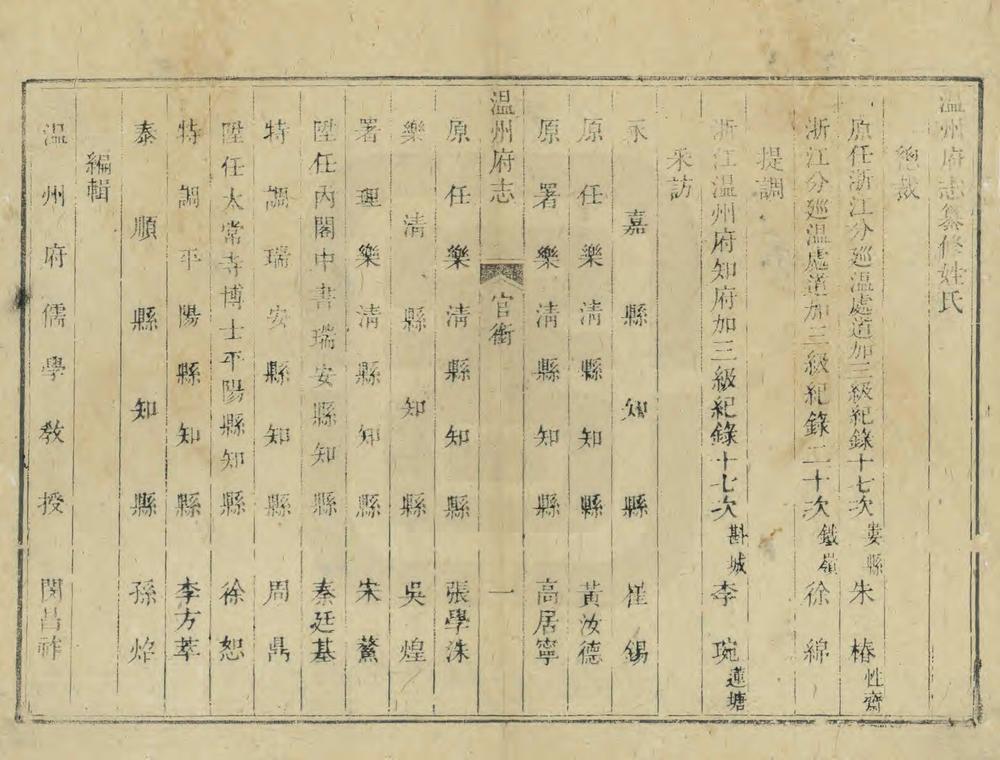 温州府志纂修姓氏
總裁
原任浙江分廵温處道加三級紀錄十七次婁縣朱椿性齋
浙江分廵温處道加三級紀錄二十次鐵嶺徐綿
提調
浙江温州府知府加三級紀錄十七次斟城李琬蓮塘
采訪
永嘉縣知縣崔錫
原任樂清縣知縣黃汝德
原署樂清縣知縣高居寧
温州府志 官銜 一
原任樂清縣知縣張學洙
樂清縣知縣吳煌
署理樂清縣知縣宋鰲
陞任內閣中書瑞安縣知縣秦廷基
特調瑞安縣知縣周鼎
陞任太常寺博士平陽縣知縣徐恕
特調平陽縣知縣李方萃
泰順縣知縣孫焰
編輯
温州府儒學教授閔昌祚